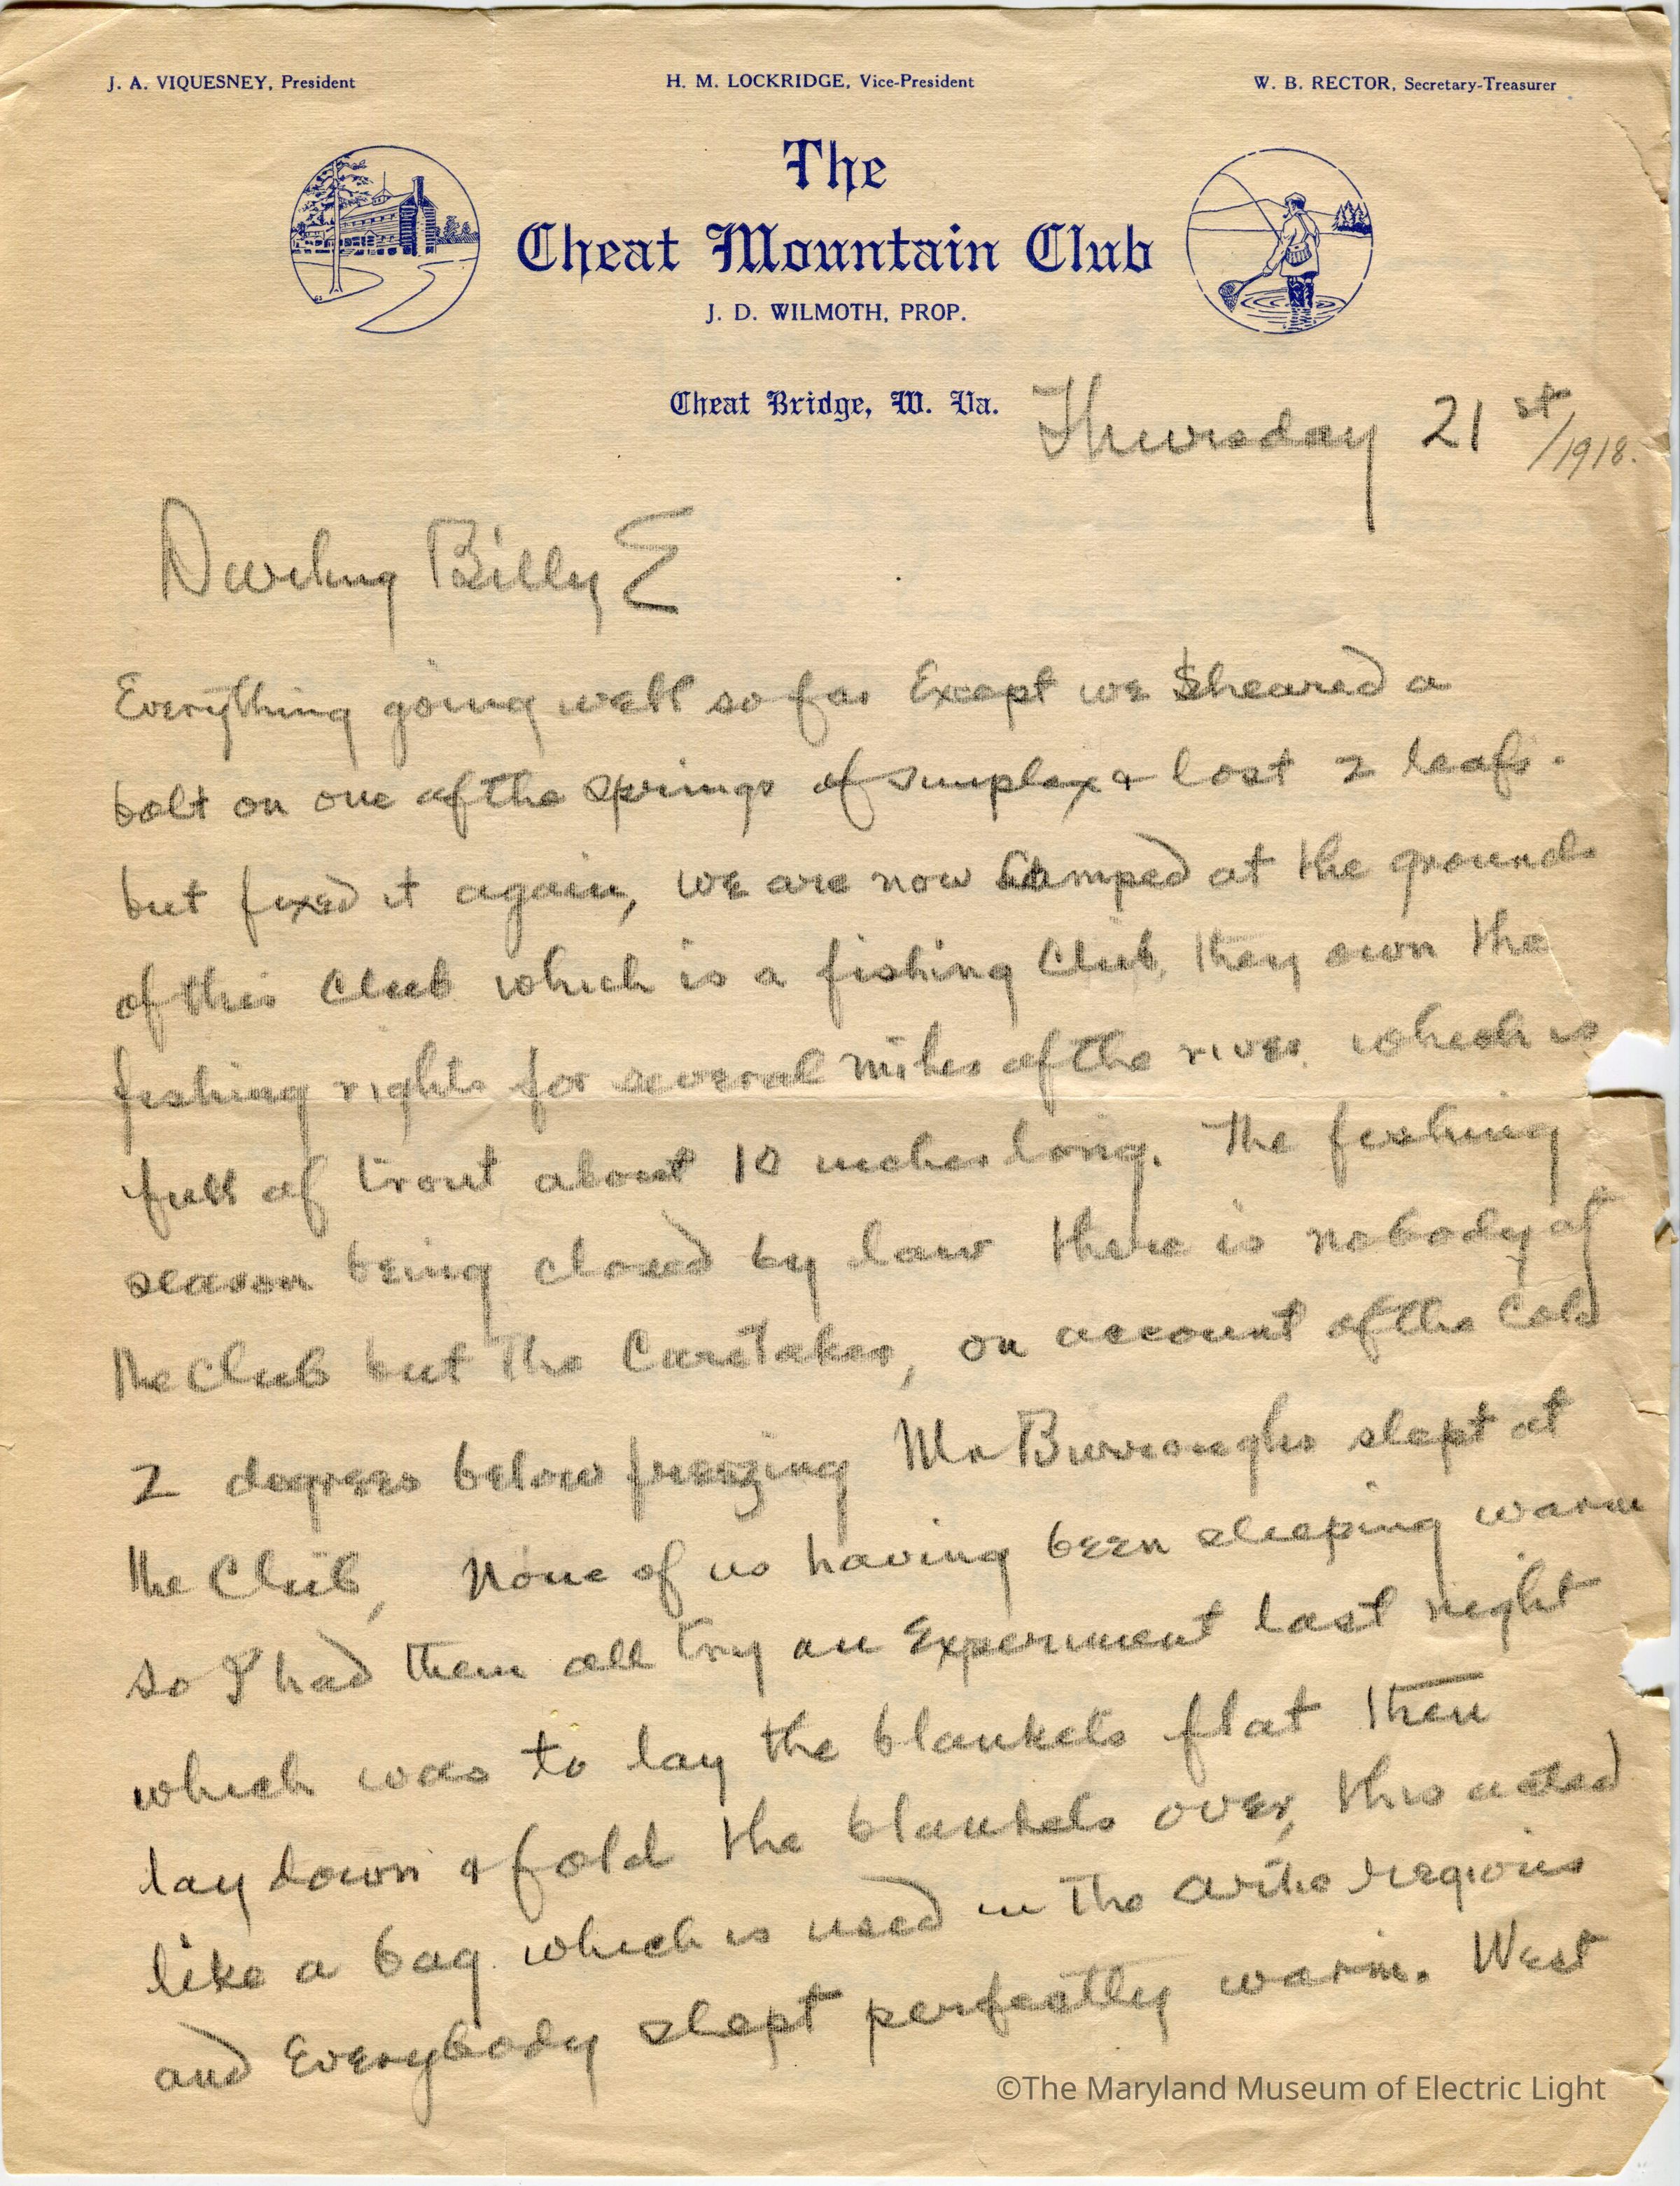 J. A. VIQUESNEY, President H. M. LOCKRIDGE, Vice-President W. B. RECTOR, Secretary-Treasurer
The
Cheat Mountain Club
J. D. WILMOTH, PROP.
Cheat Bridge, W. Va. Thursday 21st/1918.
Darling Billy E
Everything going well so far Except we Sheared a
bolt on one of the springs of simplex & lost 2 leafs.
but fixed it again, we are now Camped at the grounds
of this Club which is a fishing Club, they own the
fishing rights for several miles of the river which is
full of trout about 10 inches long. The fishing
season being closed by law there is nobody at
the Club but the Caretaker, on account of the Cold
2 degrees below freezing Mr Burroughs slept at
the Club, None of us having been sleeping warm
so I had them all try an Experiment last night
which was to lay the blankets flat then
lay down & fold the blankets over, this acted
like a bag which is used in the artic regions
and Everybody slept perfectly warm. West
©The Maryland Museum of Electric Light